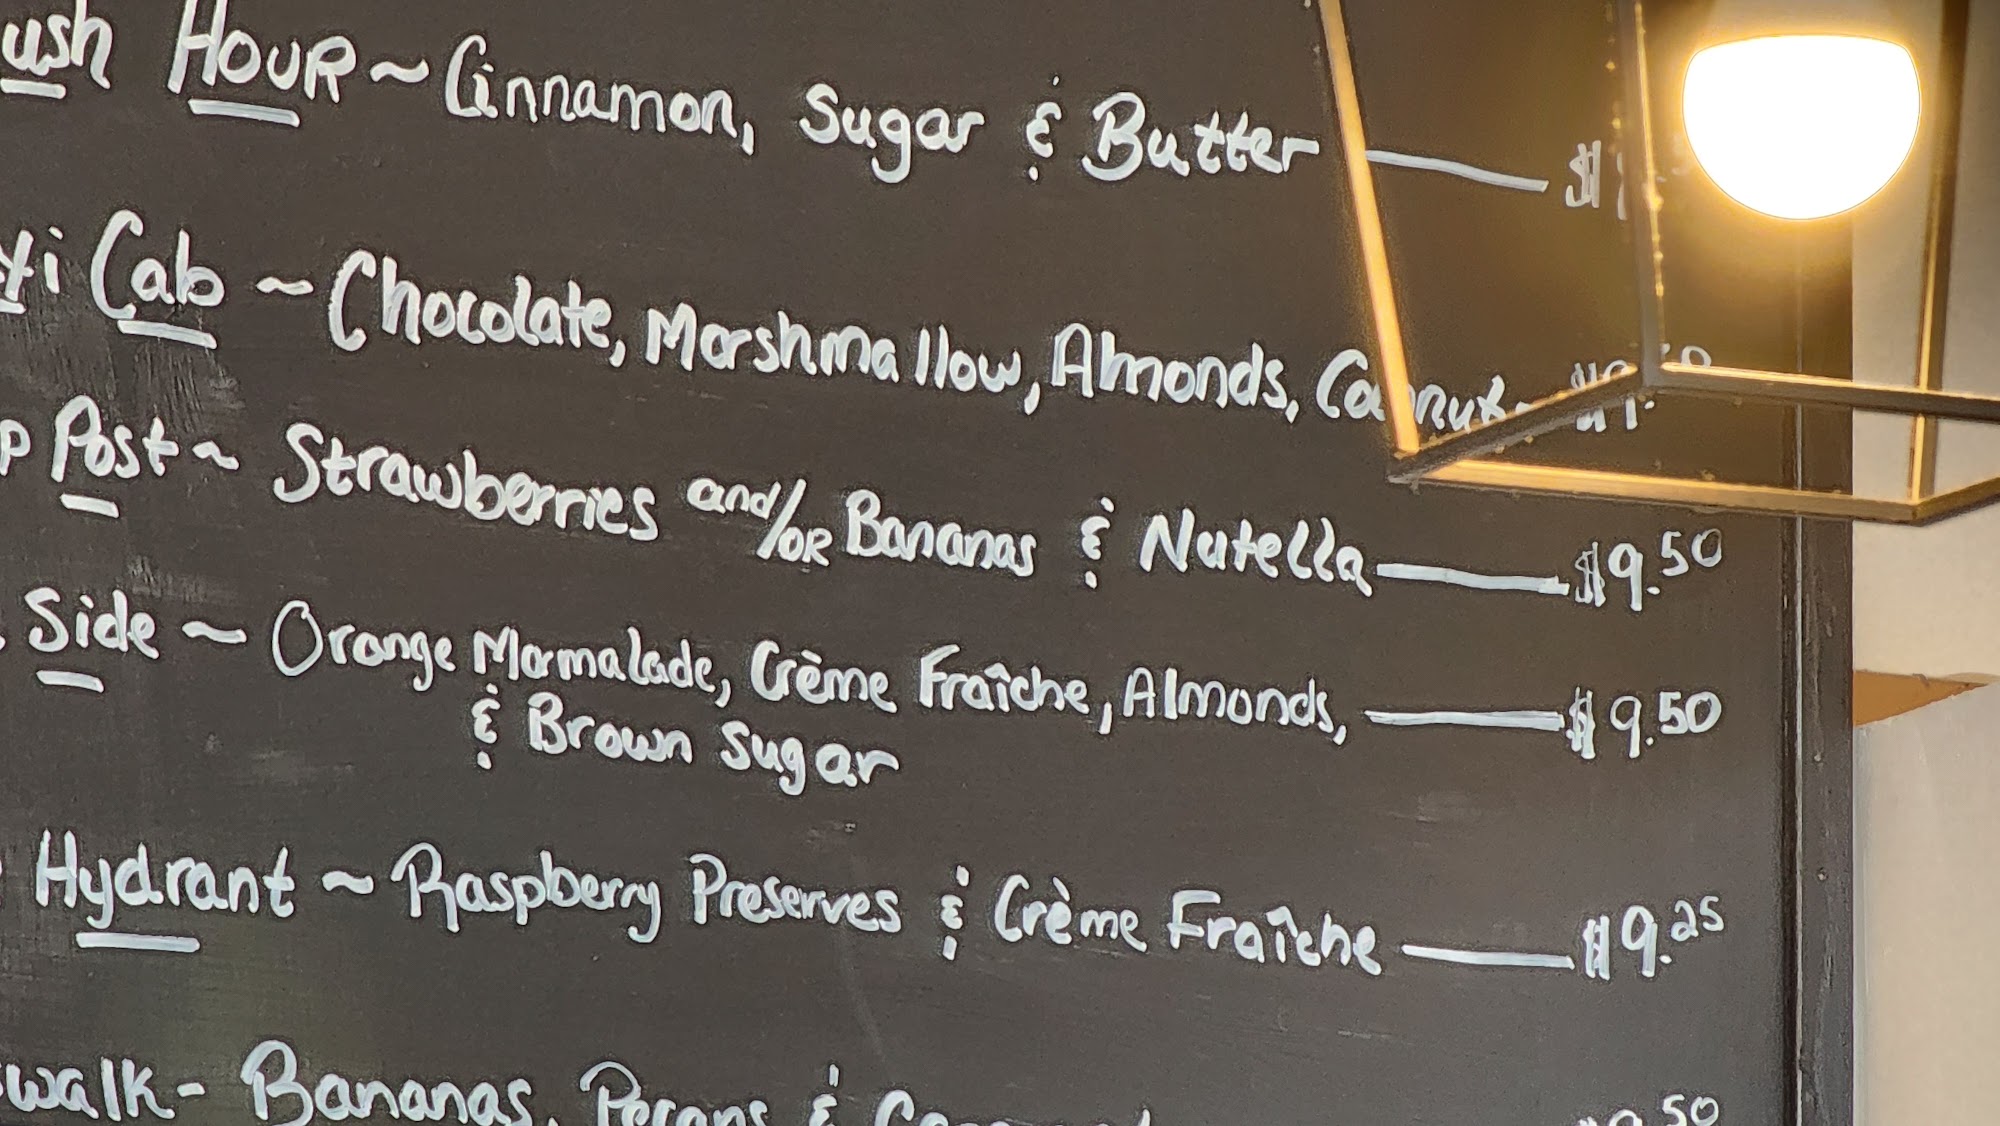 ush HOUR ~ Cinnamon, Sugar & Butter — $
xi Cab ~ Chocolate, Marshmallow, Almonds, Coconut - $9.50
p Post ~ Strawberries and/or Bananas & Nutella — $9.50
Side ~ Orange Marmalade, Crème Fraîche, Almonds, — $9.50
& Brown Sugar
Hydrant ~ Raspberry Preserves & Crème Fraîche — $9.25
swalk - Bananas, Pecans & .50